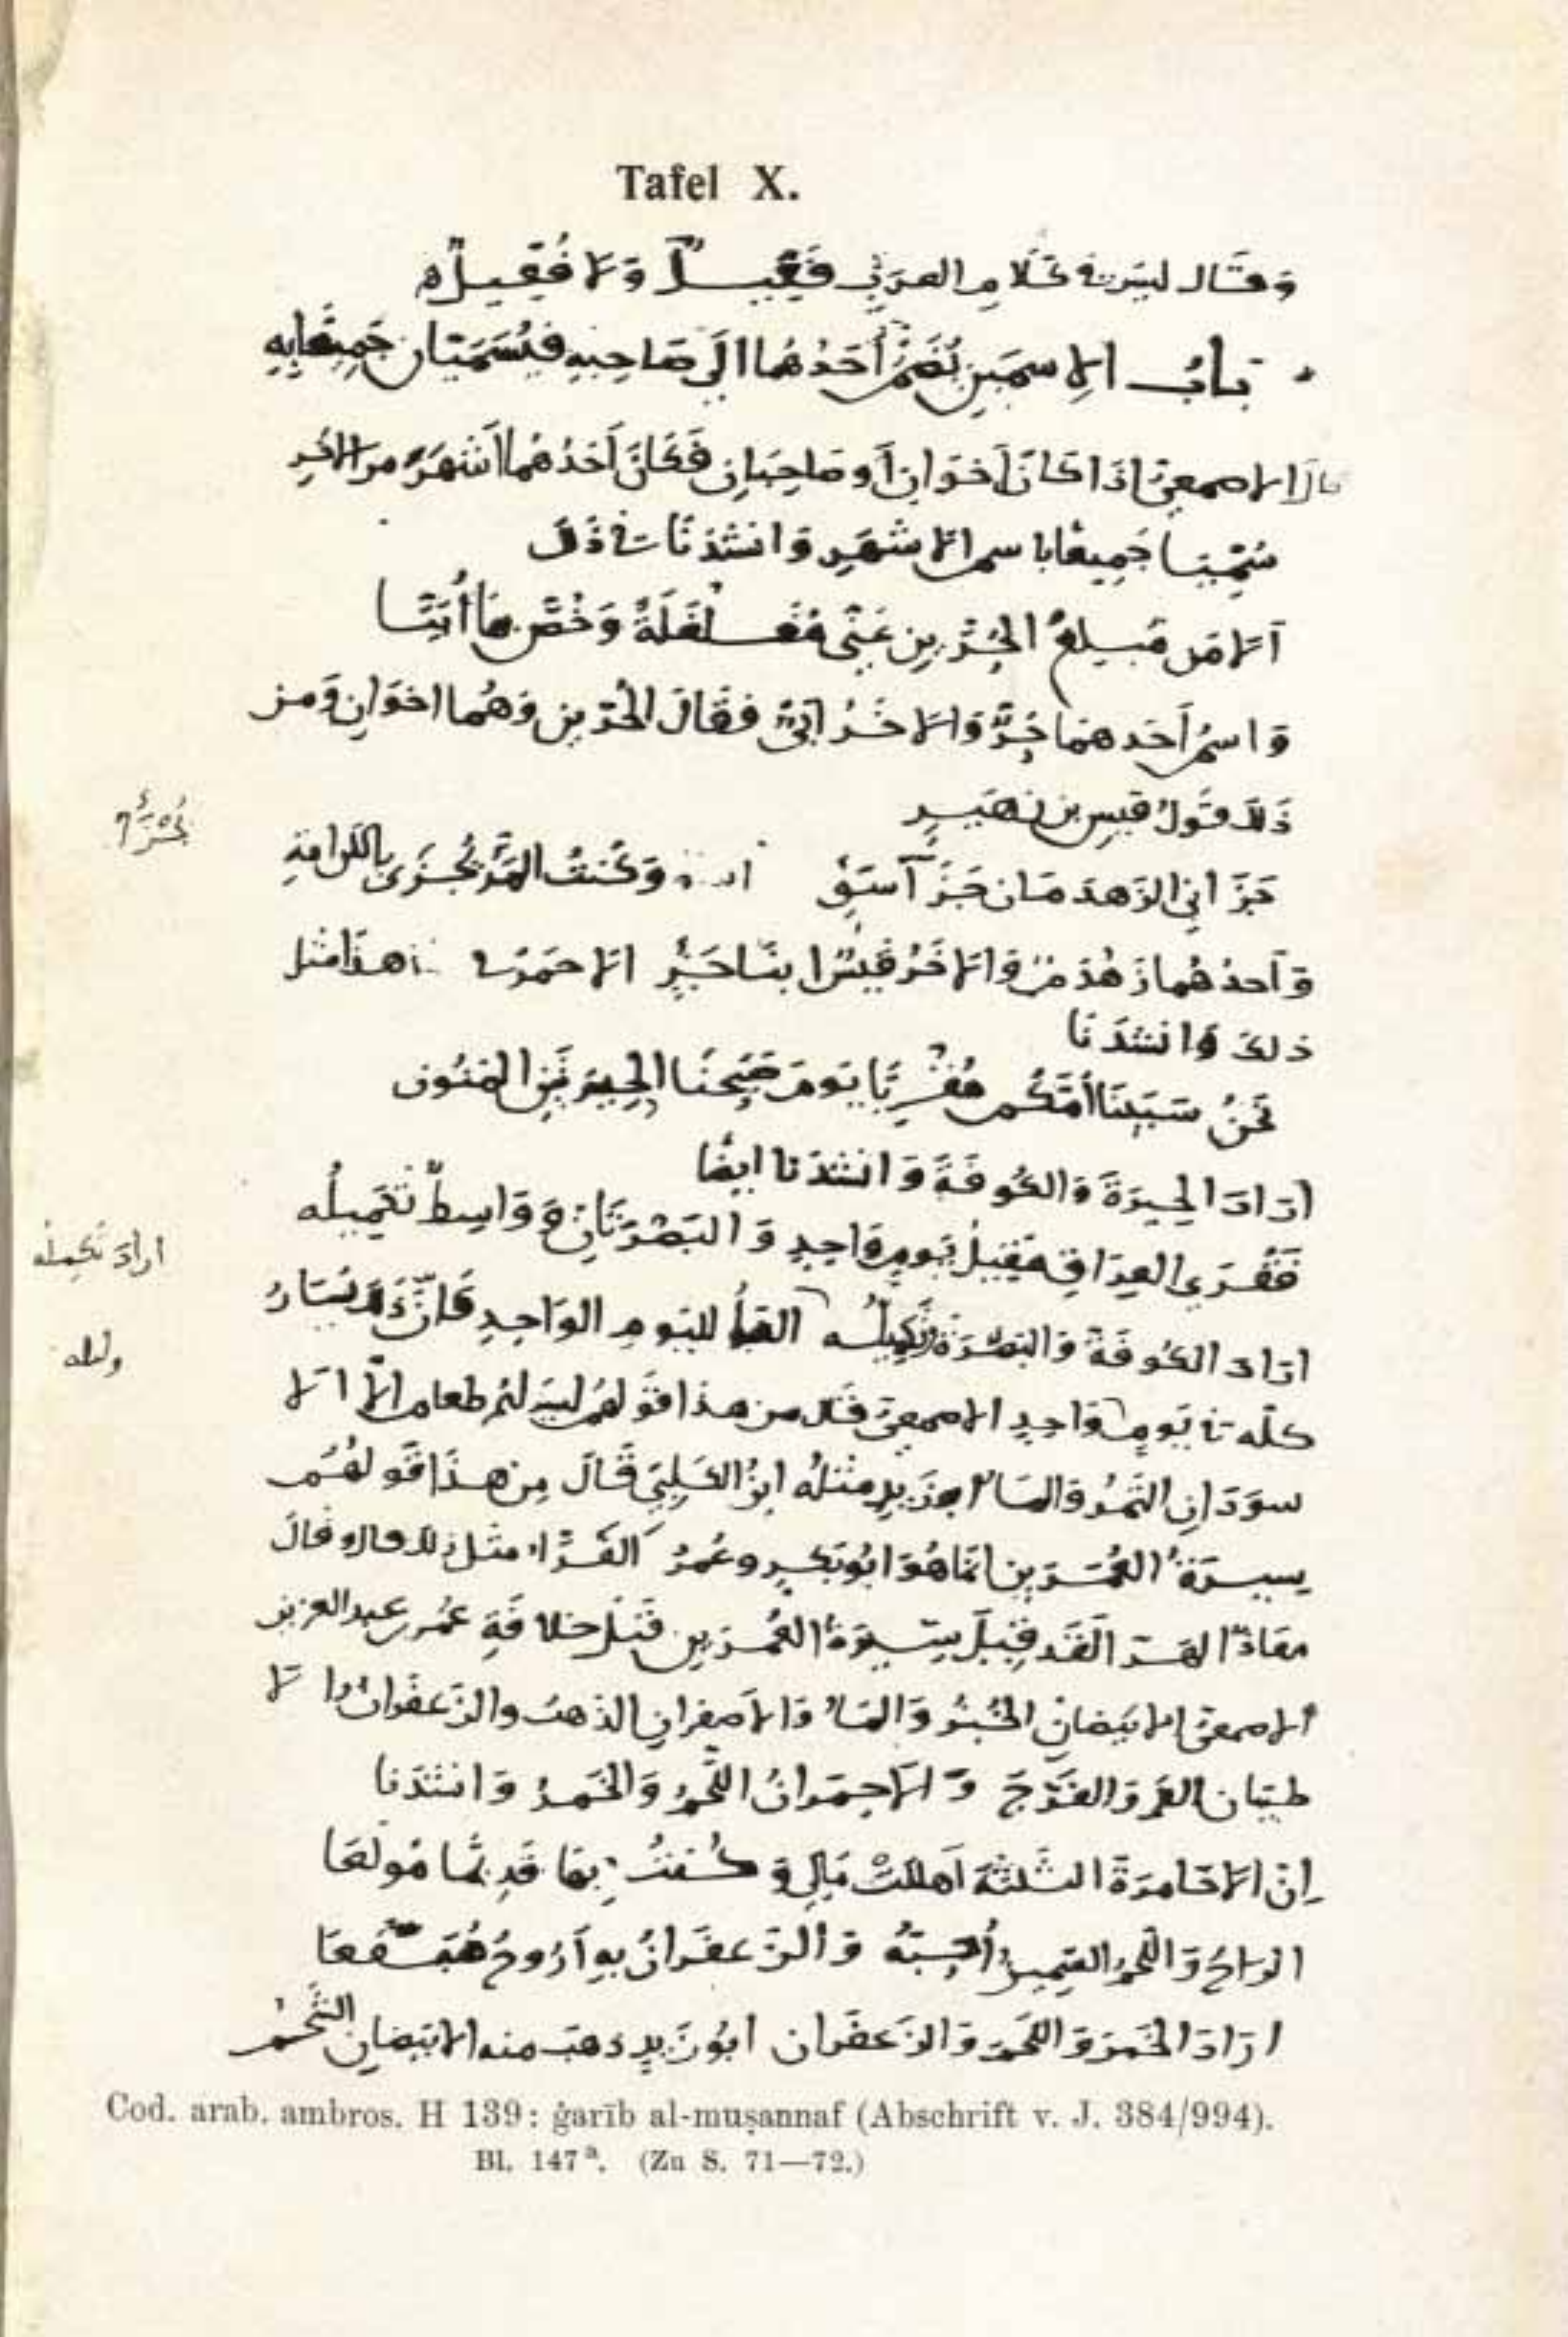 Tafel X.
وَقَال ليسَ في كَلامِ العربِ فَعِّيلٌ وَلا فُعِّيلٌ ه
بابُ الاِسمَينِ يُضَمُّ أَحَدُهُما الَى صَاحِبِهِ فيُسَمَّيَانِ جَمِيعًا بِهِ
قالَ الاصمعيّ اذَا كَانَ أَخوَانِ أَو صَاحِبَانِ فَكَانَ أَحَدُهُما أَشْهَرَ مِنَ الآخَرِ
سُمِّيَا جَمِيعًا باسم الاشهَرِ وَانشَدَنَا في ذَلكَ
أَلا مَن مُبلِغُ الحُرَّينِ عَنّي مُغَلغَلَةً وَخُصَّ بها أُبَيَّا
وَاسمُ أَحَدهمَا حُرٌّ وَالاخَرُ أُبَيٌّ فقَالَ الحُرَّينِ وَهُما اخوَانِ وَمن
ذَلكَ قَولُ قيسِ بن زهَيرٍ
جَزَانِي الزَهدَمَانِ جَزَآءَ سَوءٍ وَكُنتُ المَرءَ يُجزَى بالكَرَامَةِ
وَأَحدُهُما زَهْدَمٌ وَالاخَرُ قَيسٌ ابنَا جَزءٍ الاحمر هذا مثل
ذلكَ وَانشَدَنَا
نَحنُ سَبَينَا أُمَّكُم مُقرِبًا يَومَ صَبَحنَا الحِيرَتَينِ المَنُون
ارَادَ الحِيرَةَ وَالكُوفَةَ وَانشَدَنا ايضًا
فَقُرَى العِرَاقِ مَقِيلُ يَومٍ وَاحِدٍ وَالبَصْرَتَانِ وَوَاسِطٌ تَكمِيلُه
ارَادَ الكُوفَةَ وَالبَصْرَةَ تَكمِيلُه الهَاء لليَومِ الوَاحِدِ كَانَّ ذَلكَ يُسَارُ
كلّه في يَومٍ وَاحِدٍ الاصمعيّ قَال من هذا قَولهُم ليسَ لهُم طعام الَّا الا
سوَدَانِ التَمرُ وَالمَاءُ ابو زَيدٍ مثلُه ابنُ الكَلبيّ قَالَ مِن هذَا قَولهُم
سِيرَةُ العُمَرَينِ انَّمَا هُوَ ابُو بَكرٍ وعُمرُ الفَرَّاءُ مثل ذلكَ قال وقالَ
معَاذٌ الهَرَّاء لَقَد قِيلَ سِيرَةُ العُمرَينِ قَبلَ خلافَةِ عُمر بن عبد العزيز
الاصمعيّ الابيَضَانِ الخُبزُ وَالمَاءُ وَالاصفرَانِ الذَهبُ والزَعفَرانُ والا
طيَبَان الفَمُ وَالفَرجُ وَالاحمَرَانُ اللَّحمُ وَالخَمرُ وَانشَدَنا
اِنّ الاحَامِرَةَ الثَلثَةَ اهلكَتْ مَالِي وَكُنتُ بِهَا قَدِيمًا مُولَعَا
الرَاحُ وَاللَّحمُ السَمِينُ أُحِبُّهُ وَالزَعفَرانُ بهِ أَرُوحُ مُبَقَّعَا
ارَادَ الخَمرَ وَاللَّحمَ وَالزَعفَرانَ ابُو زَيدٍ ذهبَ منه الابيَضَانِ الشَّحمُ
ارادَ تَكميله
Cod. arab. ambros. H 139: ġarīb al-muṣannaf (Abschrift v. J. 384/994).
Bl. 147ª. (Zu S. 71—72.)